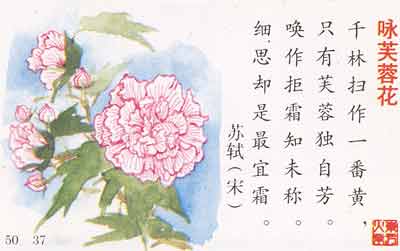 咏芙蓉花
千林扫作一番黄，
只有芙蓉独自芳。
唤作拒霜知未称。
细思却是最宜霜。
苏轼（宋）
50 37